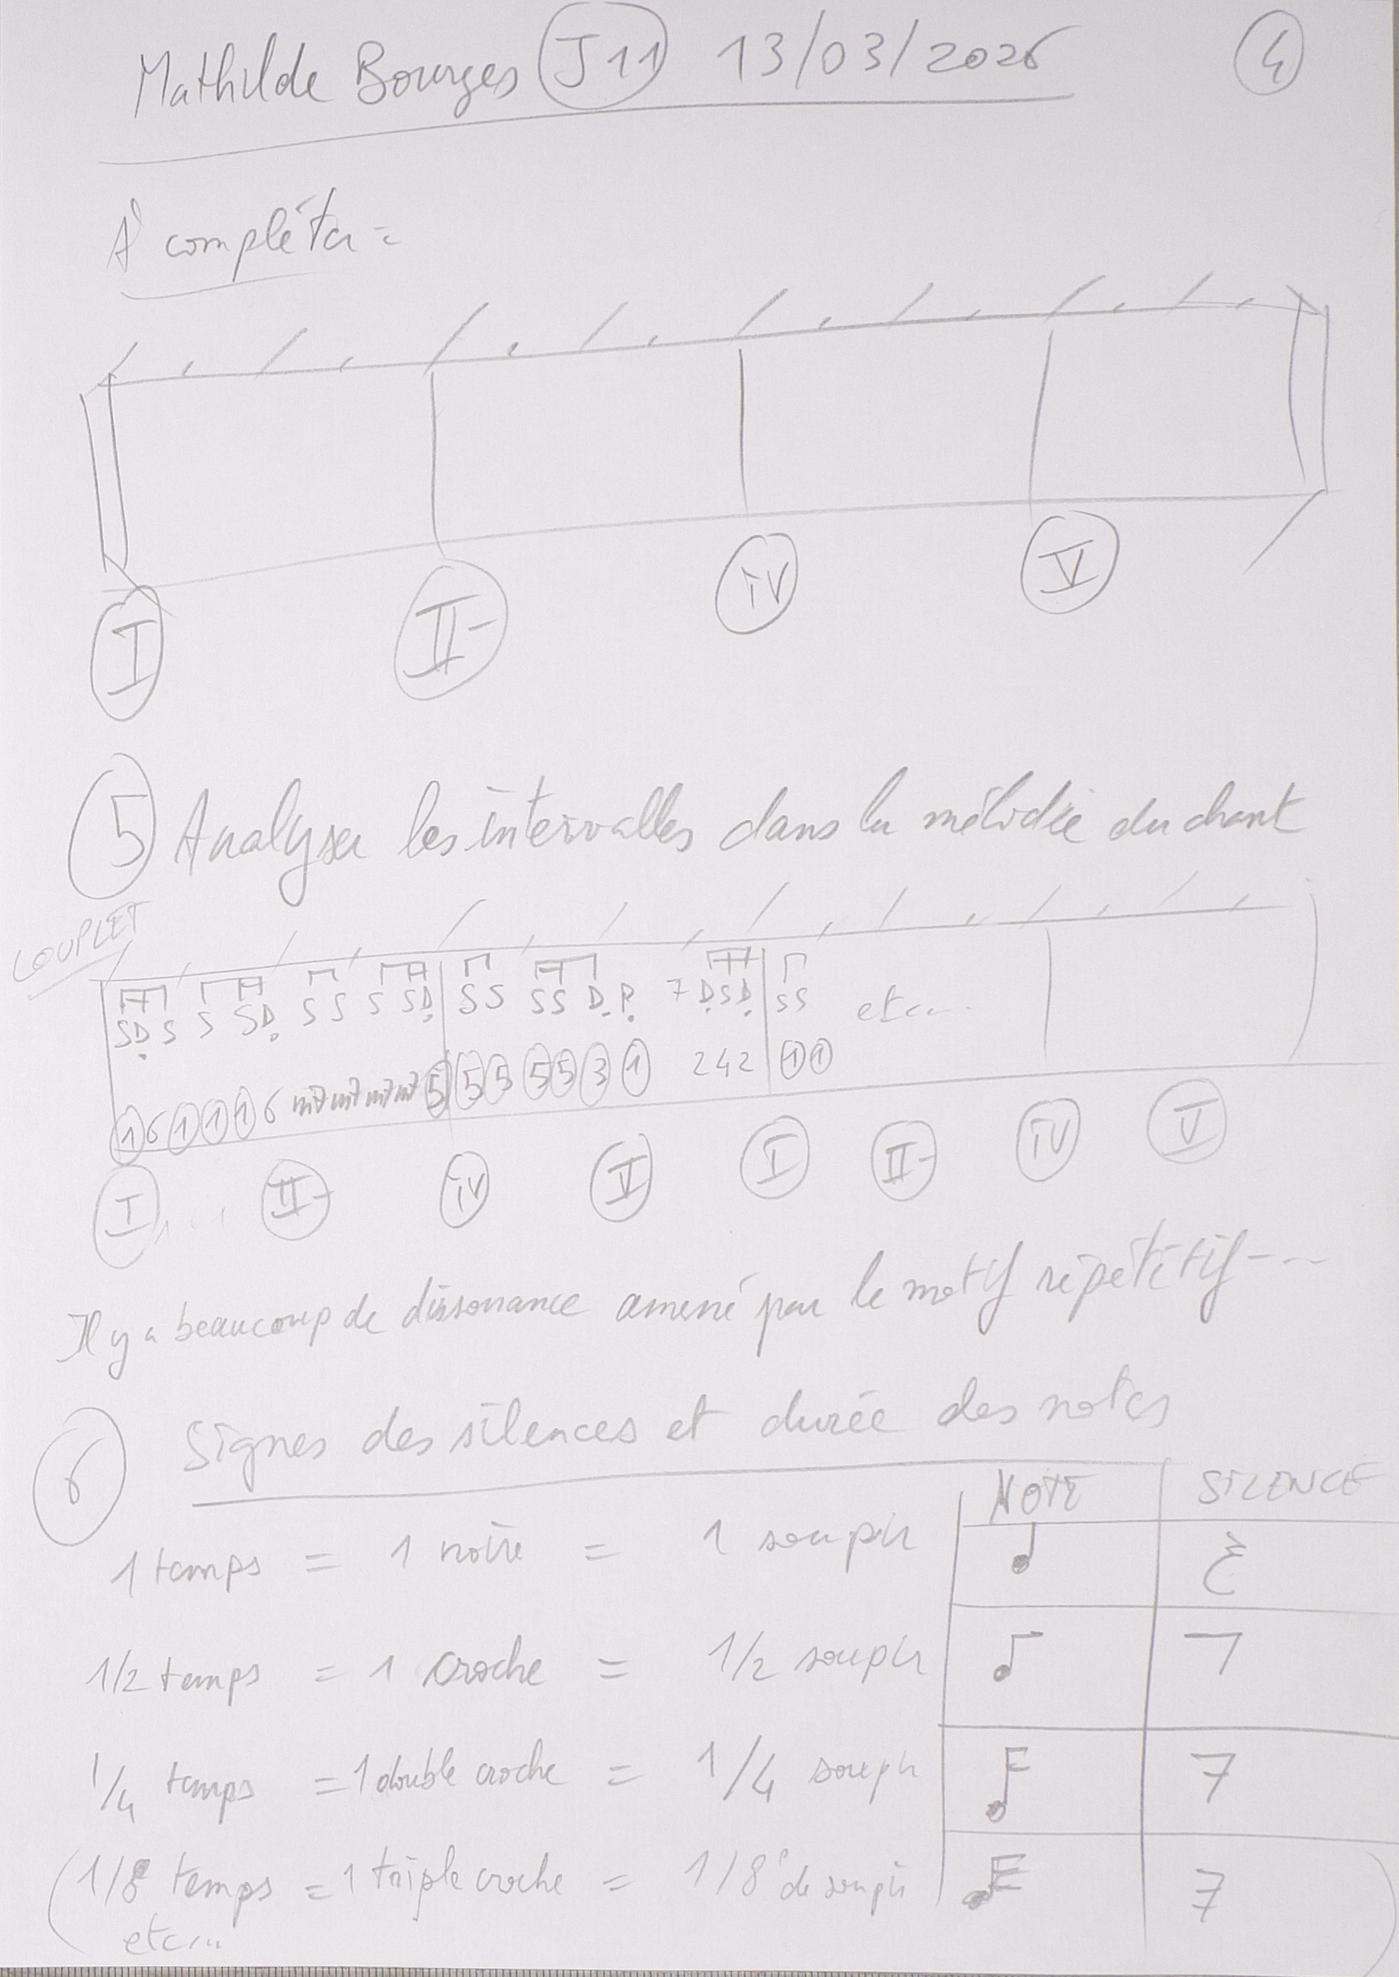 Mathilde Bourges J11 13/03/2026 4
À compléter =
I II- IV V
5 Analyser les intervalles dans la mélodie du chant
COUPLET
SD S S SD S S S SD S S SS D P 7 DSD SS etc...
1 6 1 1 1 6 m7 m7 m7 m7 5 5 5 5 5 3 1 2 4 2 1 1
I II- IV V I II- IV V
Il y a beaucoup de dissonance amené par le motif répétitif---
6 Signes des silences et durée des notes
NOTE SILENCE
1 temps = 1 noire = 1 soupir
1/2 temps = 1 croche = 1/2 soupir
1/4 temps = 1 double croche = 1/4 soupir
(1/8 temps = 1 triple croche = 1/8 de soupir
etc... )